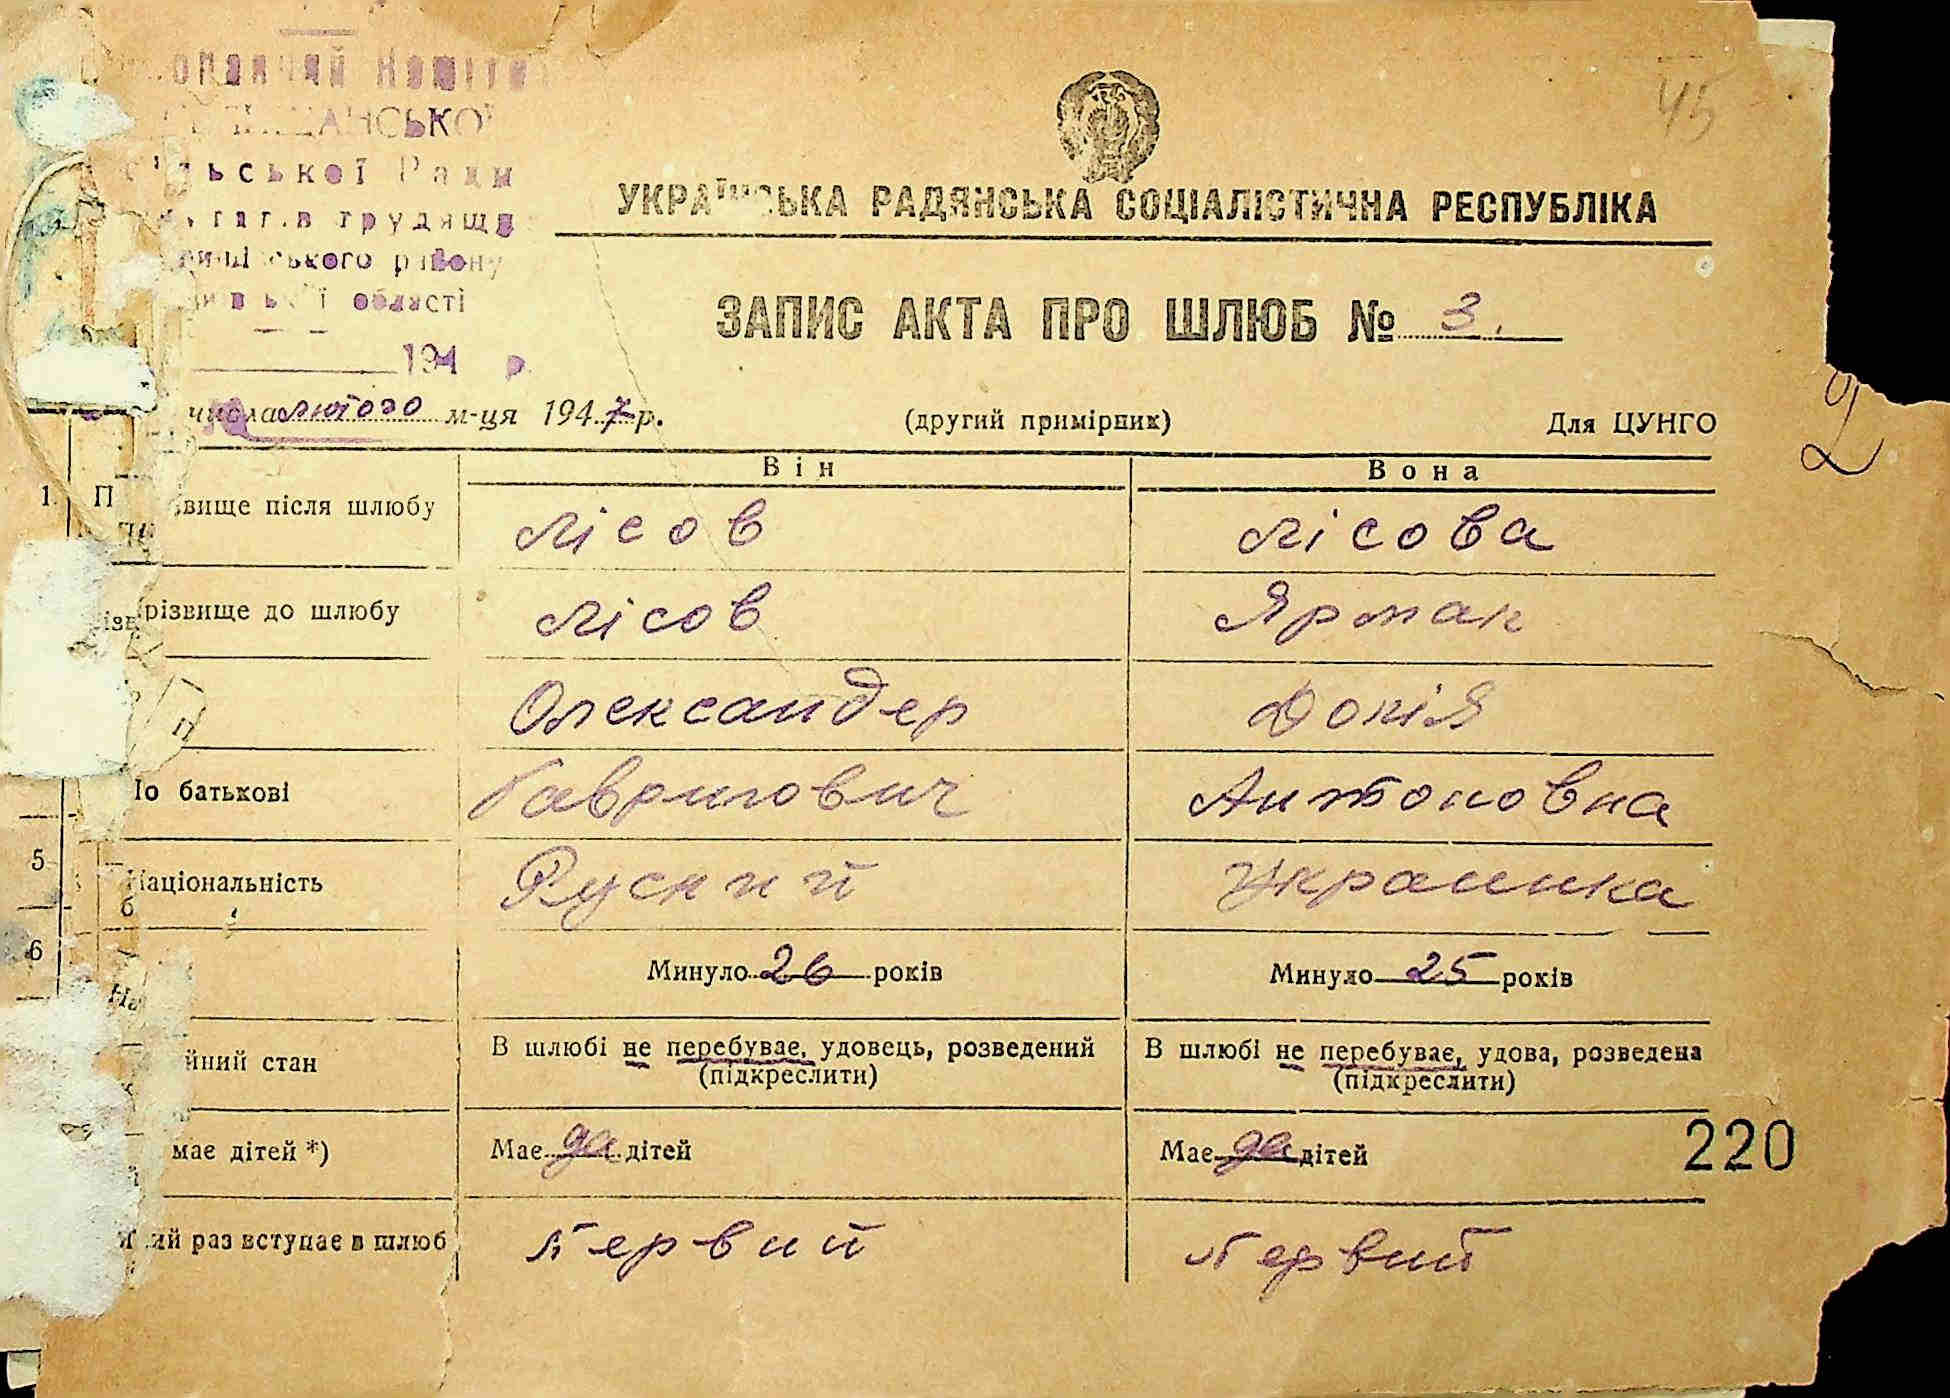 45
сільської Ради
області
194 р.
УКРАЇНСЬКА РАДЯНСЬКА СОЦІАЛІСТИЧНА РЕСПУБЛІКА
ЗАПИС АКТА ПРО ШЛЮБ № 3.
числа лютого м-ця 1947 р.
(другий примірник)
Для ЦУНГО
2
Він Вона
1. звище після шлюбу Лісов Лісова
різвище до шлюбу Лісов Ярмак
Олександер Докія
По батькові Гаврилович Антоновна
5 Національність Руский Украинка
6 Минуло 26 років Минуло 25 років
йний стан В шлюбі не перебуває, удовець, розведений В шлюбі не перебуває, удова, розведена
(підкреслити) (підкреслити)
має дітей *) Має да дітей Має да дітей
220
ий раз вступає в шлюб Первий Первий